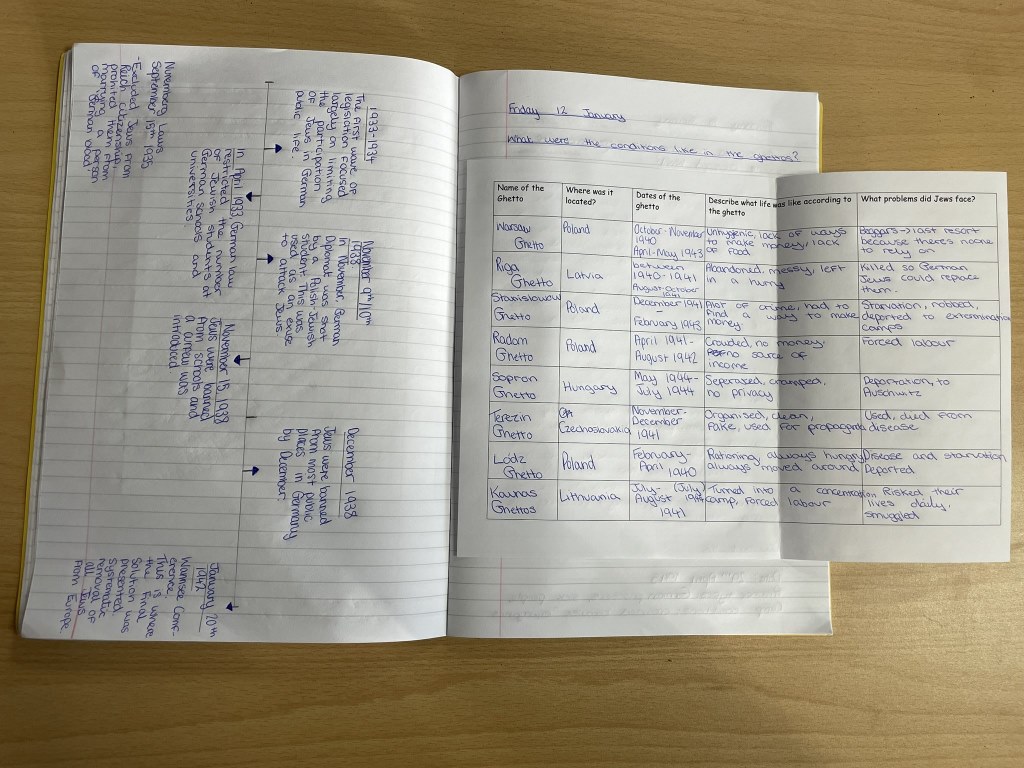 1933-1934
The first wave of
legislation focused
largely on limiting
the participation
of Jews in German
public life.
In April 1933, German law
restricted the number
of Jewish students at
German schools and
universities
Nuremberg Laws
September 15th 1935
-Excluded Jews from
Reich citizenship,
prohibited them from
marrying a person
of "German blood"
November 9th/10th
1938
in November, German
Diplomat was shot
by a Polish Jewish
student. This was
used as an excuse
to attack Jews
November 15 1938
Jews were banned
from schools and
a curfew was
introduced
December 1938
Jews were banned
from most public
places in Germany
by December
January 20th
1942
Wannsee Conf-
erence
This is where
the Final
Solution was
presented
systematic
removal of
all Jews
From Europe.
Friday 12 January
What were the conditions like in the ghettos?
Name of the Ghetto
Where was it located?
Dates of the ghetto
Describe what life was like according to the ghetto
What problems did Jews face?
Warsaw Ghetto
Poland
October - November 1940
April-May 1943
Unhygenic, lack of ways
to make money, lack
of food
Beggars → last resort
because there's noone
to rely on
Riga Ghetto
Latvia
between
1940-1941
August-October
1941
Abandoned, messy, left
in a hurry
Killed so German
Jews could replace
them.
Stanislawow Ghetto
Poland
December 1941
-
February 1943
Alot of crime, had to
find a way to make
money.
Starvation, robbed,
deported to extermination
camps
Radom Ghetto
Poland
April 1941-
August 1942
Crowded, no money
no source of
income
Forced labour
Sopron Ghetto
Hungary
May 1944-
July 1944
Seperated, cramped,
no privacy
Deportation, to
Auschwitz
Terezin Ghetto
Czechoslovakia
November-
December
1941
Organised, clean,
Fake, used for propaganda
Used, died from
disease
Lódz Ghetto
Poland
February-
April 1940
Rationing, always hungry
always moved around
Disease and starvation
Deported
Kaunas Ghettos
Lithuania
July- (July)
August
1941
Turned into a concentration
camp, Forced labour
Risked their
lives daily,
smuggled